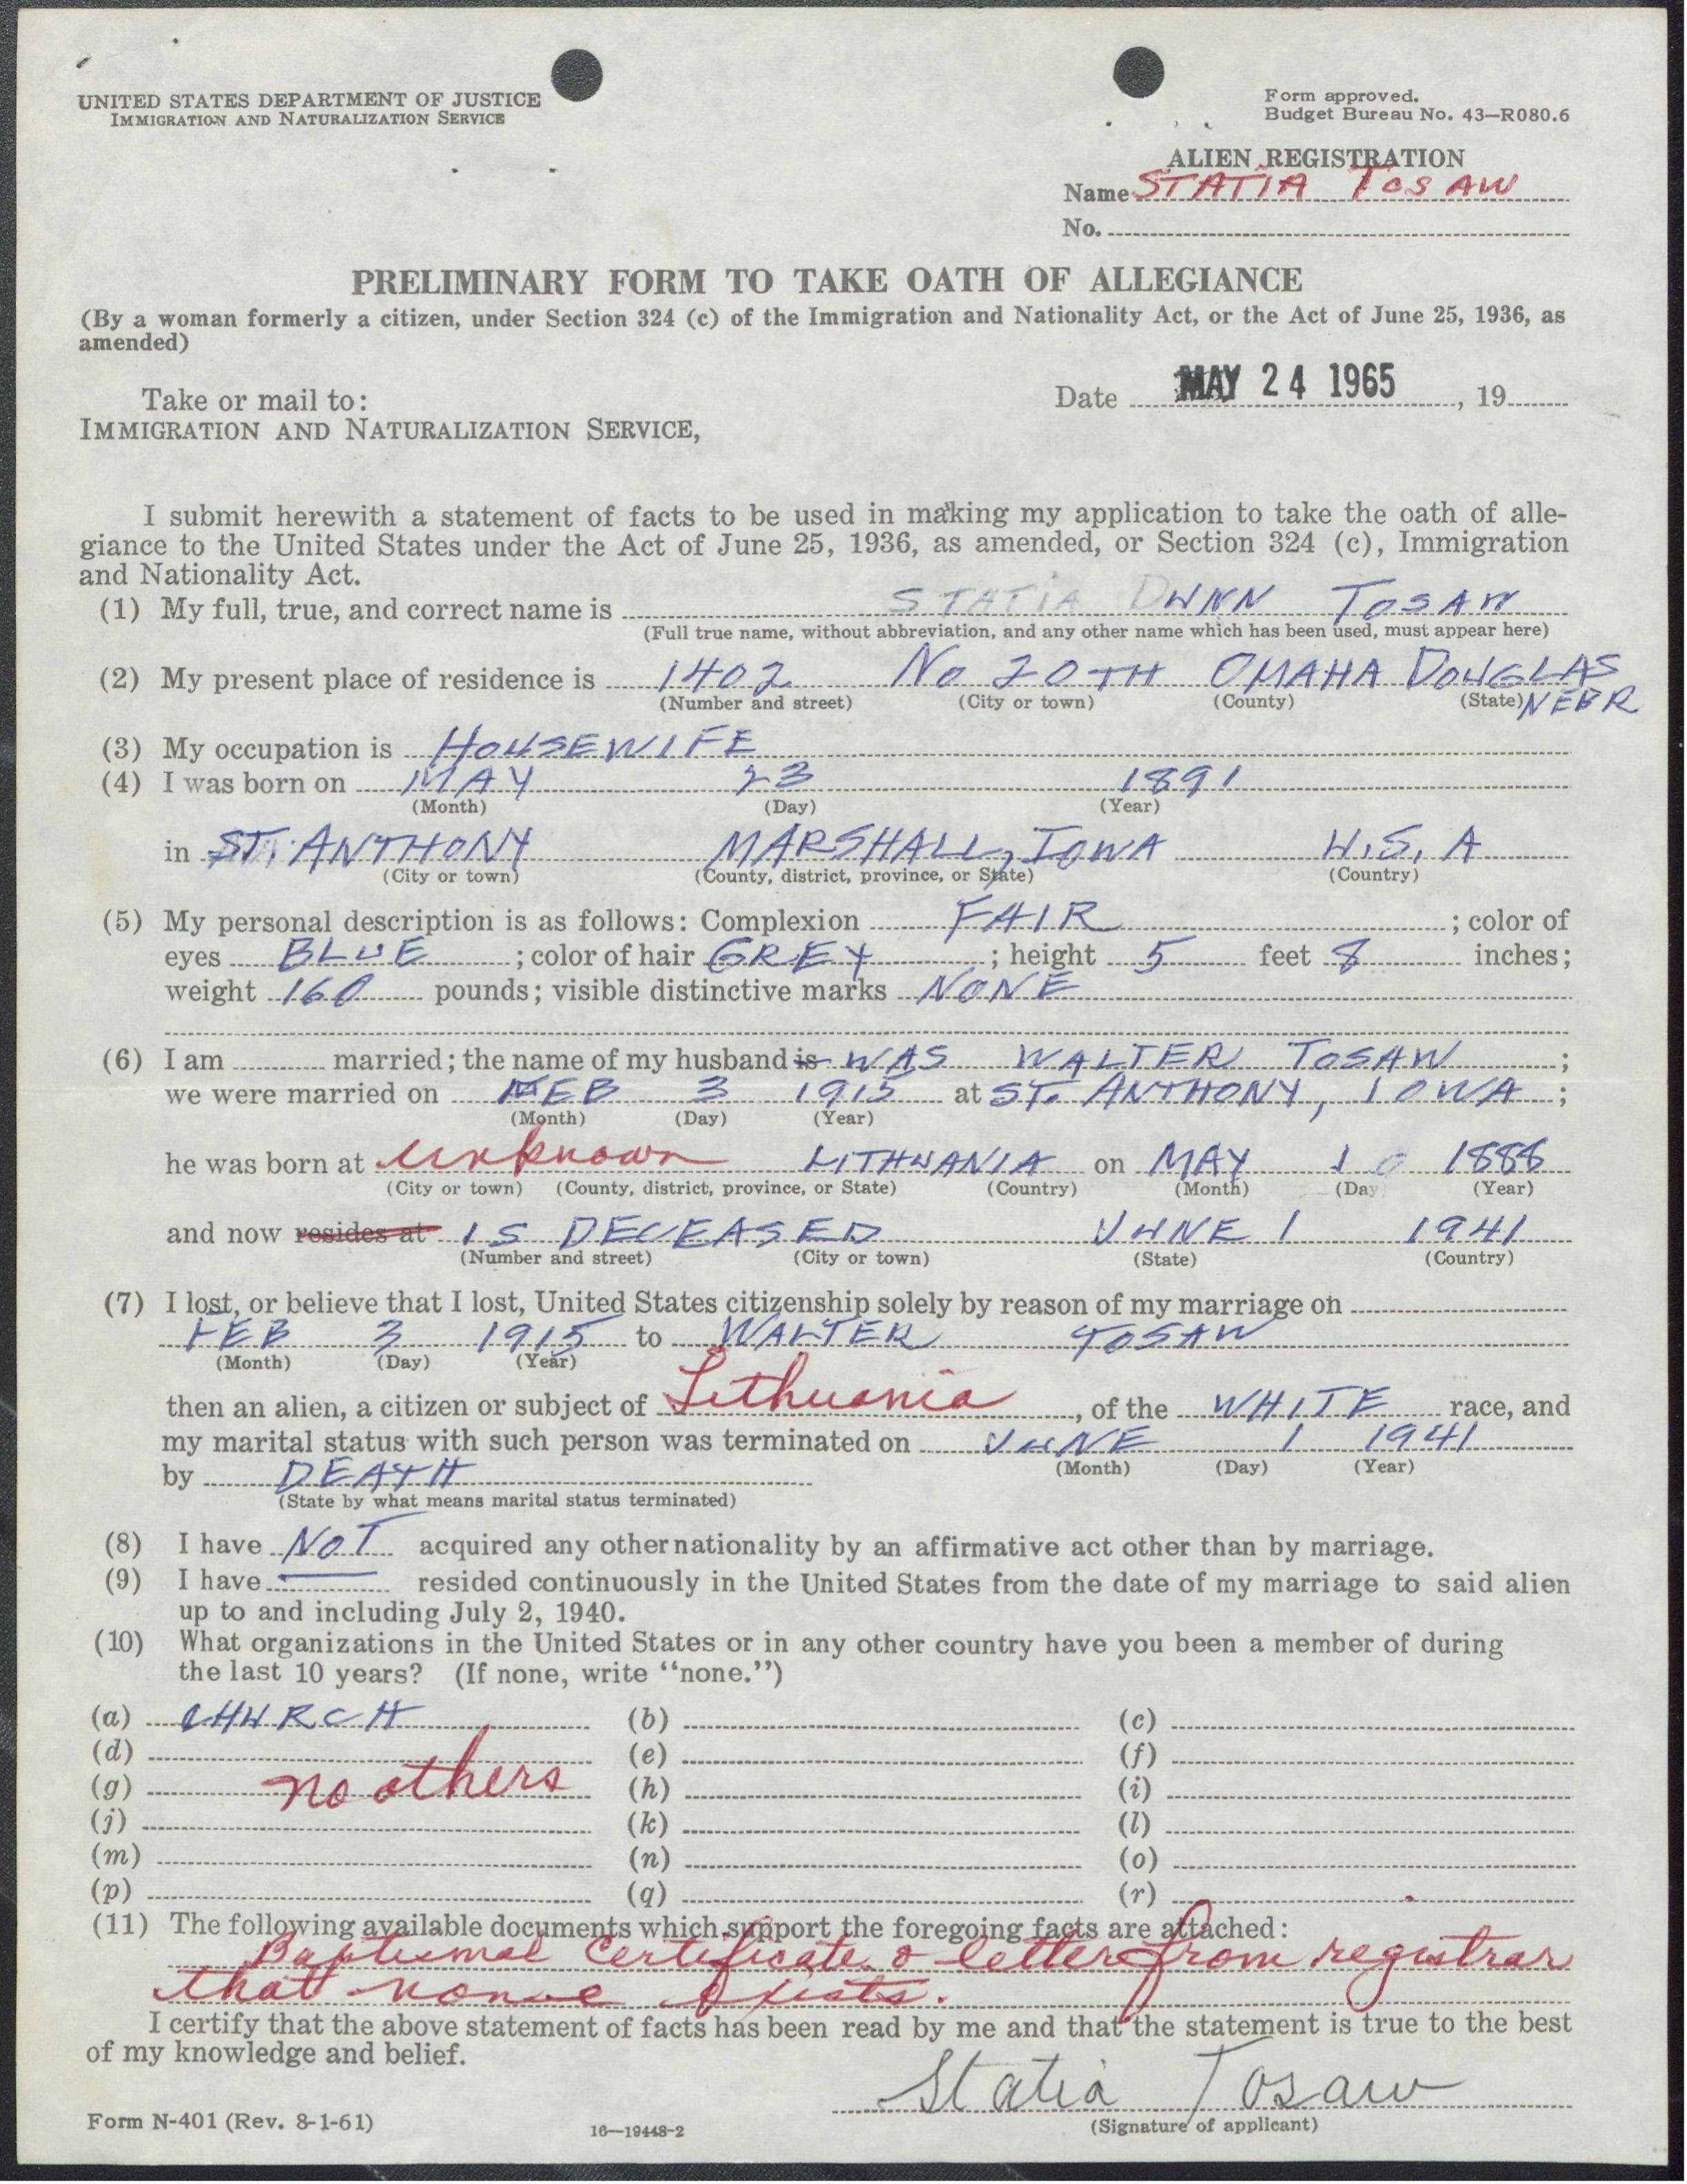 UNITED STATES DEPARTMENT OF JUSTICE
IMMIGRATION AND NATURALIZATION SERVICE
Form approved.
Budget Bureau No. 43—R080.6
ALIEN REGISTRATION
Name STATIA TOSAW
No.
PRELIMINARY FORM TO TAKE OATH OF ALLEGIANCE
(By a woman formerly a citizen, under Section 324 (c) of the Immigration and Nationality Act, or the Act of June 25, 1936, as
amended)
Take or mail to:
Date MAY 24 1965, 19
IMMIGRATION AND NATURALIZATION SERVICE,
I submit herewith a statement of facts to be used in making my application to take the oath of alle-
giance to the United States under the Act of June 25, 1936, as amended, or Section 324 (c), Immigration
and Nationality Act.
(1) My full, true, and correct name is STATIA DUNN TOSAW
(Full true name, without abbreviation, and any other name which has been used, must appear here)
(2) My present place of residence is 1402 No 20TH OMAHA DOUGLAS
(Number and street) (City or town) (County) (State) NEBR
(3) My occupation is HOUSEWIFE
(4) I was born on MAY 23 1891
(Month) (Day) (Year)
in ST. ANTHONY MARSHALL, IOWA U.S. A
(City or town) (County, district, province, or State) (Country)
(5) My personal description is as follows: Complexion FAIR ; color of
eyes BLUE ; color of hair GREY ; height 5 feet 8 inches;
weight 160 pounds; visible distinctive marks NONE
(6) I am married; the name of my husband is WAS WALTER TOSAW ;
we were married on FEB 3 1915 at ST. ANTHONY, IOWA ;
(Month) (Day) (Year)
he was born at unknown LITHUANIA on MAY 10 1888
(City or town) (County, district, province, or State) (Country) (Month) (Day (Year)
and now resides at IS DECEASED JUNE 1 1941
(Number and street) (City or town) (State) (Country)
(7) I lost, or believe that I lost, United States citizenship solely by reason of my marriage on
FEB 3 1915 to WALTER TOSAW
(Month) (Day) (Year)
then an alien, a citizen or subject of Lithuania, of the WHITE race, and
my marital status with such person was terminated on JUNE 1 1941
(Month) (Day) (Year)
by DEATH
(State by what means marital status terminated)
(8) I have NOT acquired any other nationality by an affirmative act other than by marriage.
(9) I have resided continuously in the United States from the date of my marriage to said alien
up to and including July 2, 1940.
(10) What organizations in the United States or in any other country have you been a member of during
the last 10 years? (If none, write "none.")
(a) CHURCH (b) (c)
(d) (e) (f)
(g) no others (h) (i)
(j) (k) (l)
(m) (n) (o)
(p) (q) (r)
(11) The following available documents which support the foregoing facts are attached:
Baptismal Certificate & letter from registrar
that none exists.
I certify that the above statement of facts has been read by me and that the statement is true to the best
of my knowledge and belief.
Statia Tosaw
(Signature of applicant)
Form N-401 (Rev. 8-1-61)
16—19448-2